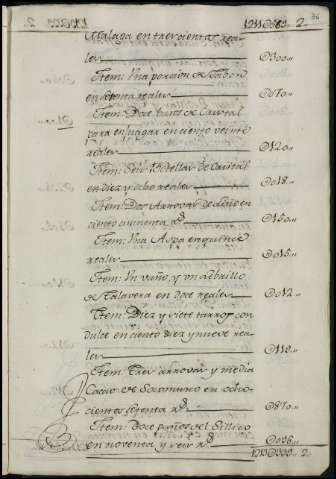 36
Malaga en trescientos rea-
les @300"
Ytem: Una porcion de Jabon
en setenta reales @070"
Ytem: Doce de Cristal
para enjuagar en ciento veinte
reales @120"
Ytem: Seis Botellas de Cristal
en diez y ocho reales @018"
Ytem: Dos Arrovas de
ciento cinquenta r.s @150"
Ytem: Una Aspa en quince
reales @015"
Ytem: Un vaño, y un
de Talavera en doce reales @012"
Ytem: Diez y siete tarros con
dulce en ciento diez y nueve rea-
les @119"
Ytem: Tres arrovas y media
Cacao de en ocho-
cientos setenta r.s @870"
Ytem: Doce paños del
en noventa y seis r.s @096"